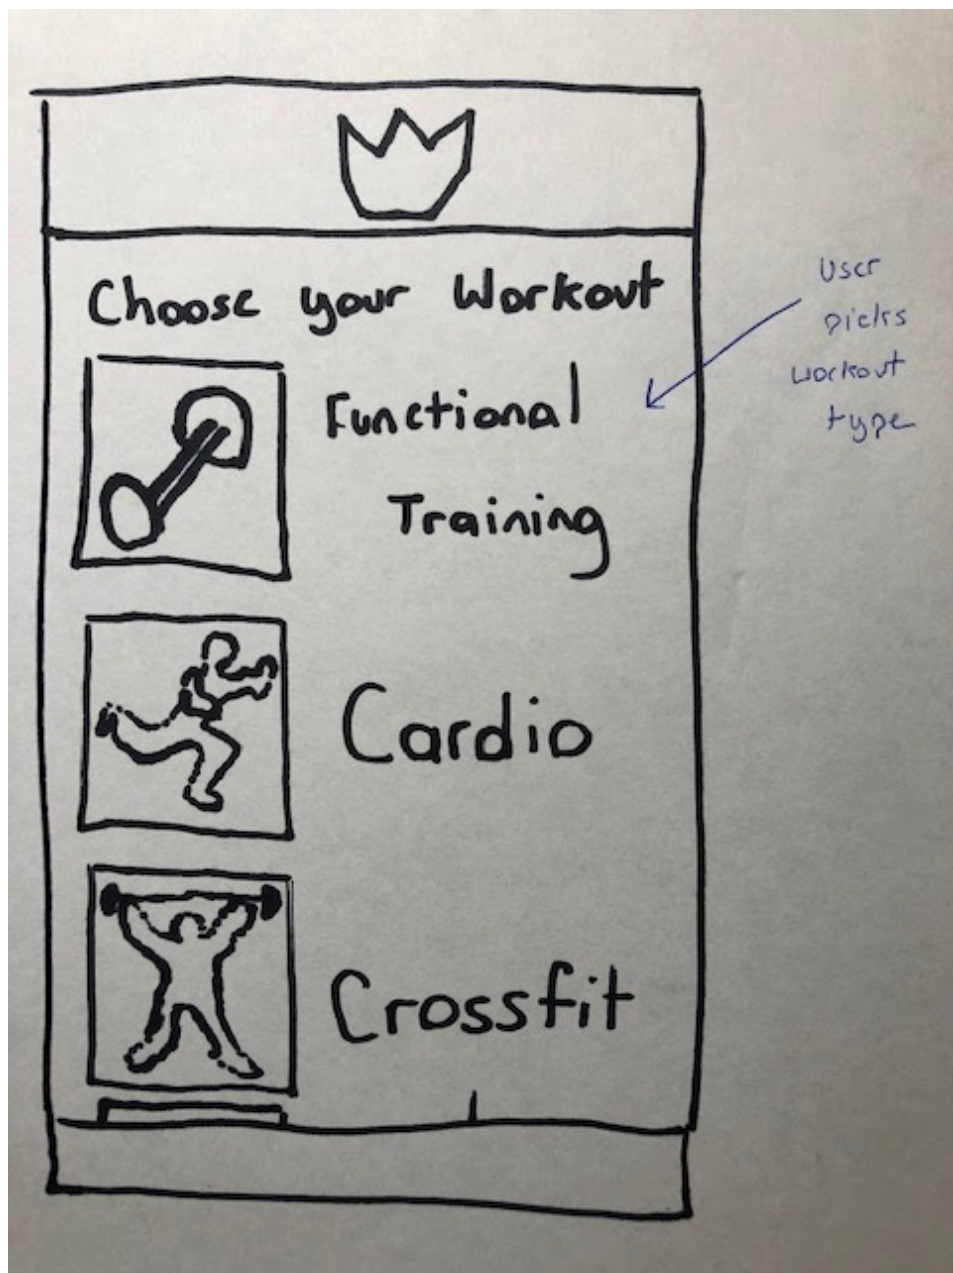 Choose your Workout
Functional
Training
Cardio
Crossfit
User
picks
workout
type